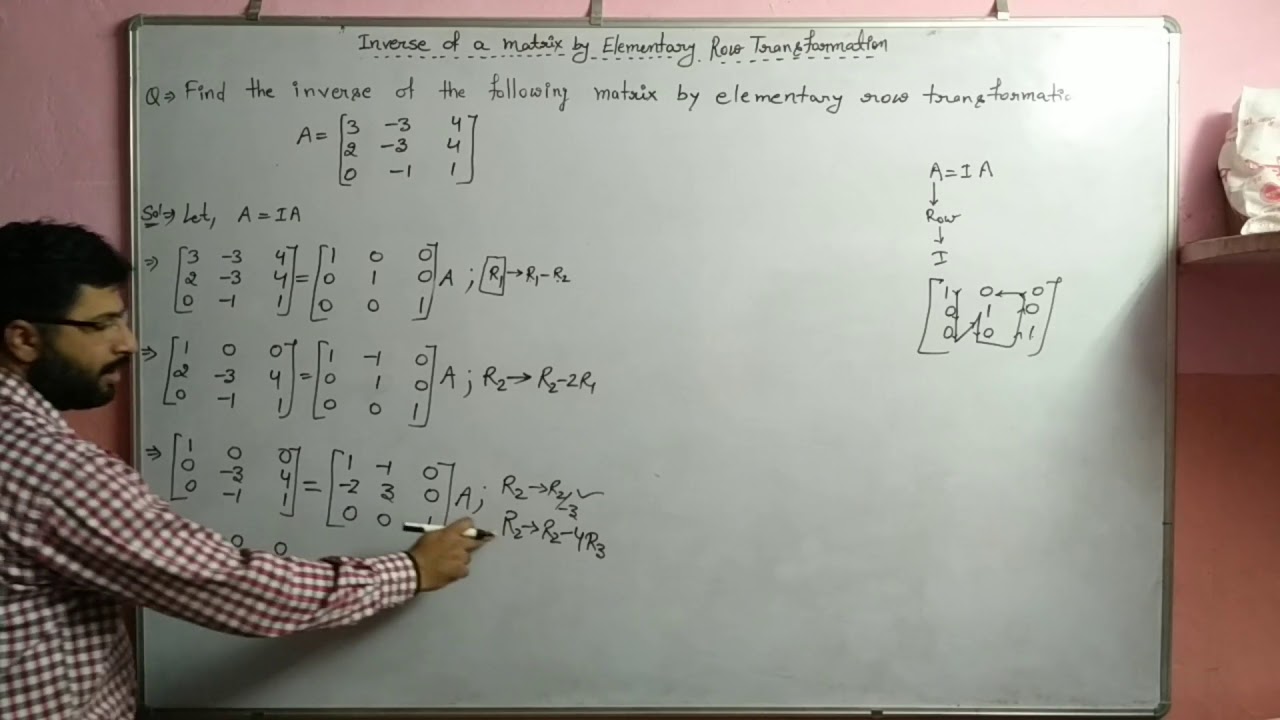 Inverse of a matrix by Elementary Row Transformation
Q⇒ Find the inverse of the following matrix by elementary row transformatio
A = [3 -3 4
2 -3 4
0 -1 1]
Sol⇒ Let, A = IA
⇒ [3 -3 4 = [1 0 0
2 -3 4 0 1 0 A ; R₁ → R₁-R₂
0 -1 1] 0 0 1]
⇒ [1 0 0 = [1 -1 0
2 -3 4 0 1 0 A ; R₂ → R₂-2R₁
0 -1 1] 0 0 1]
⇒ [1 0 0 = [1 -1 0
0 -3 4 -2 3 0 A ; R₂ → R₂/-3 ✓
0 -1 1] 0 0 1] R₂ → R₂-4R₃
0 0
A = I A
↓
Row
↓
I
[1 0 0
0 1 0
0 0 1]